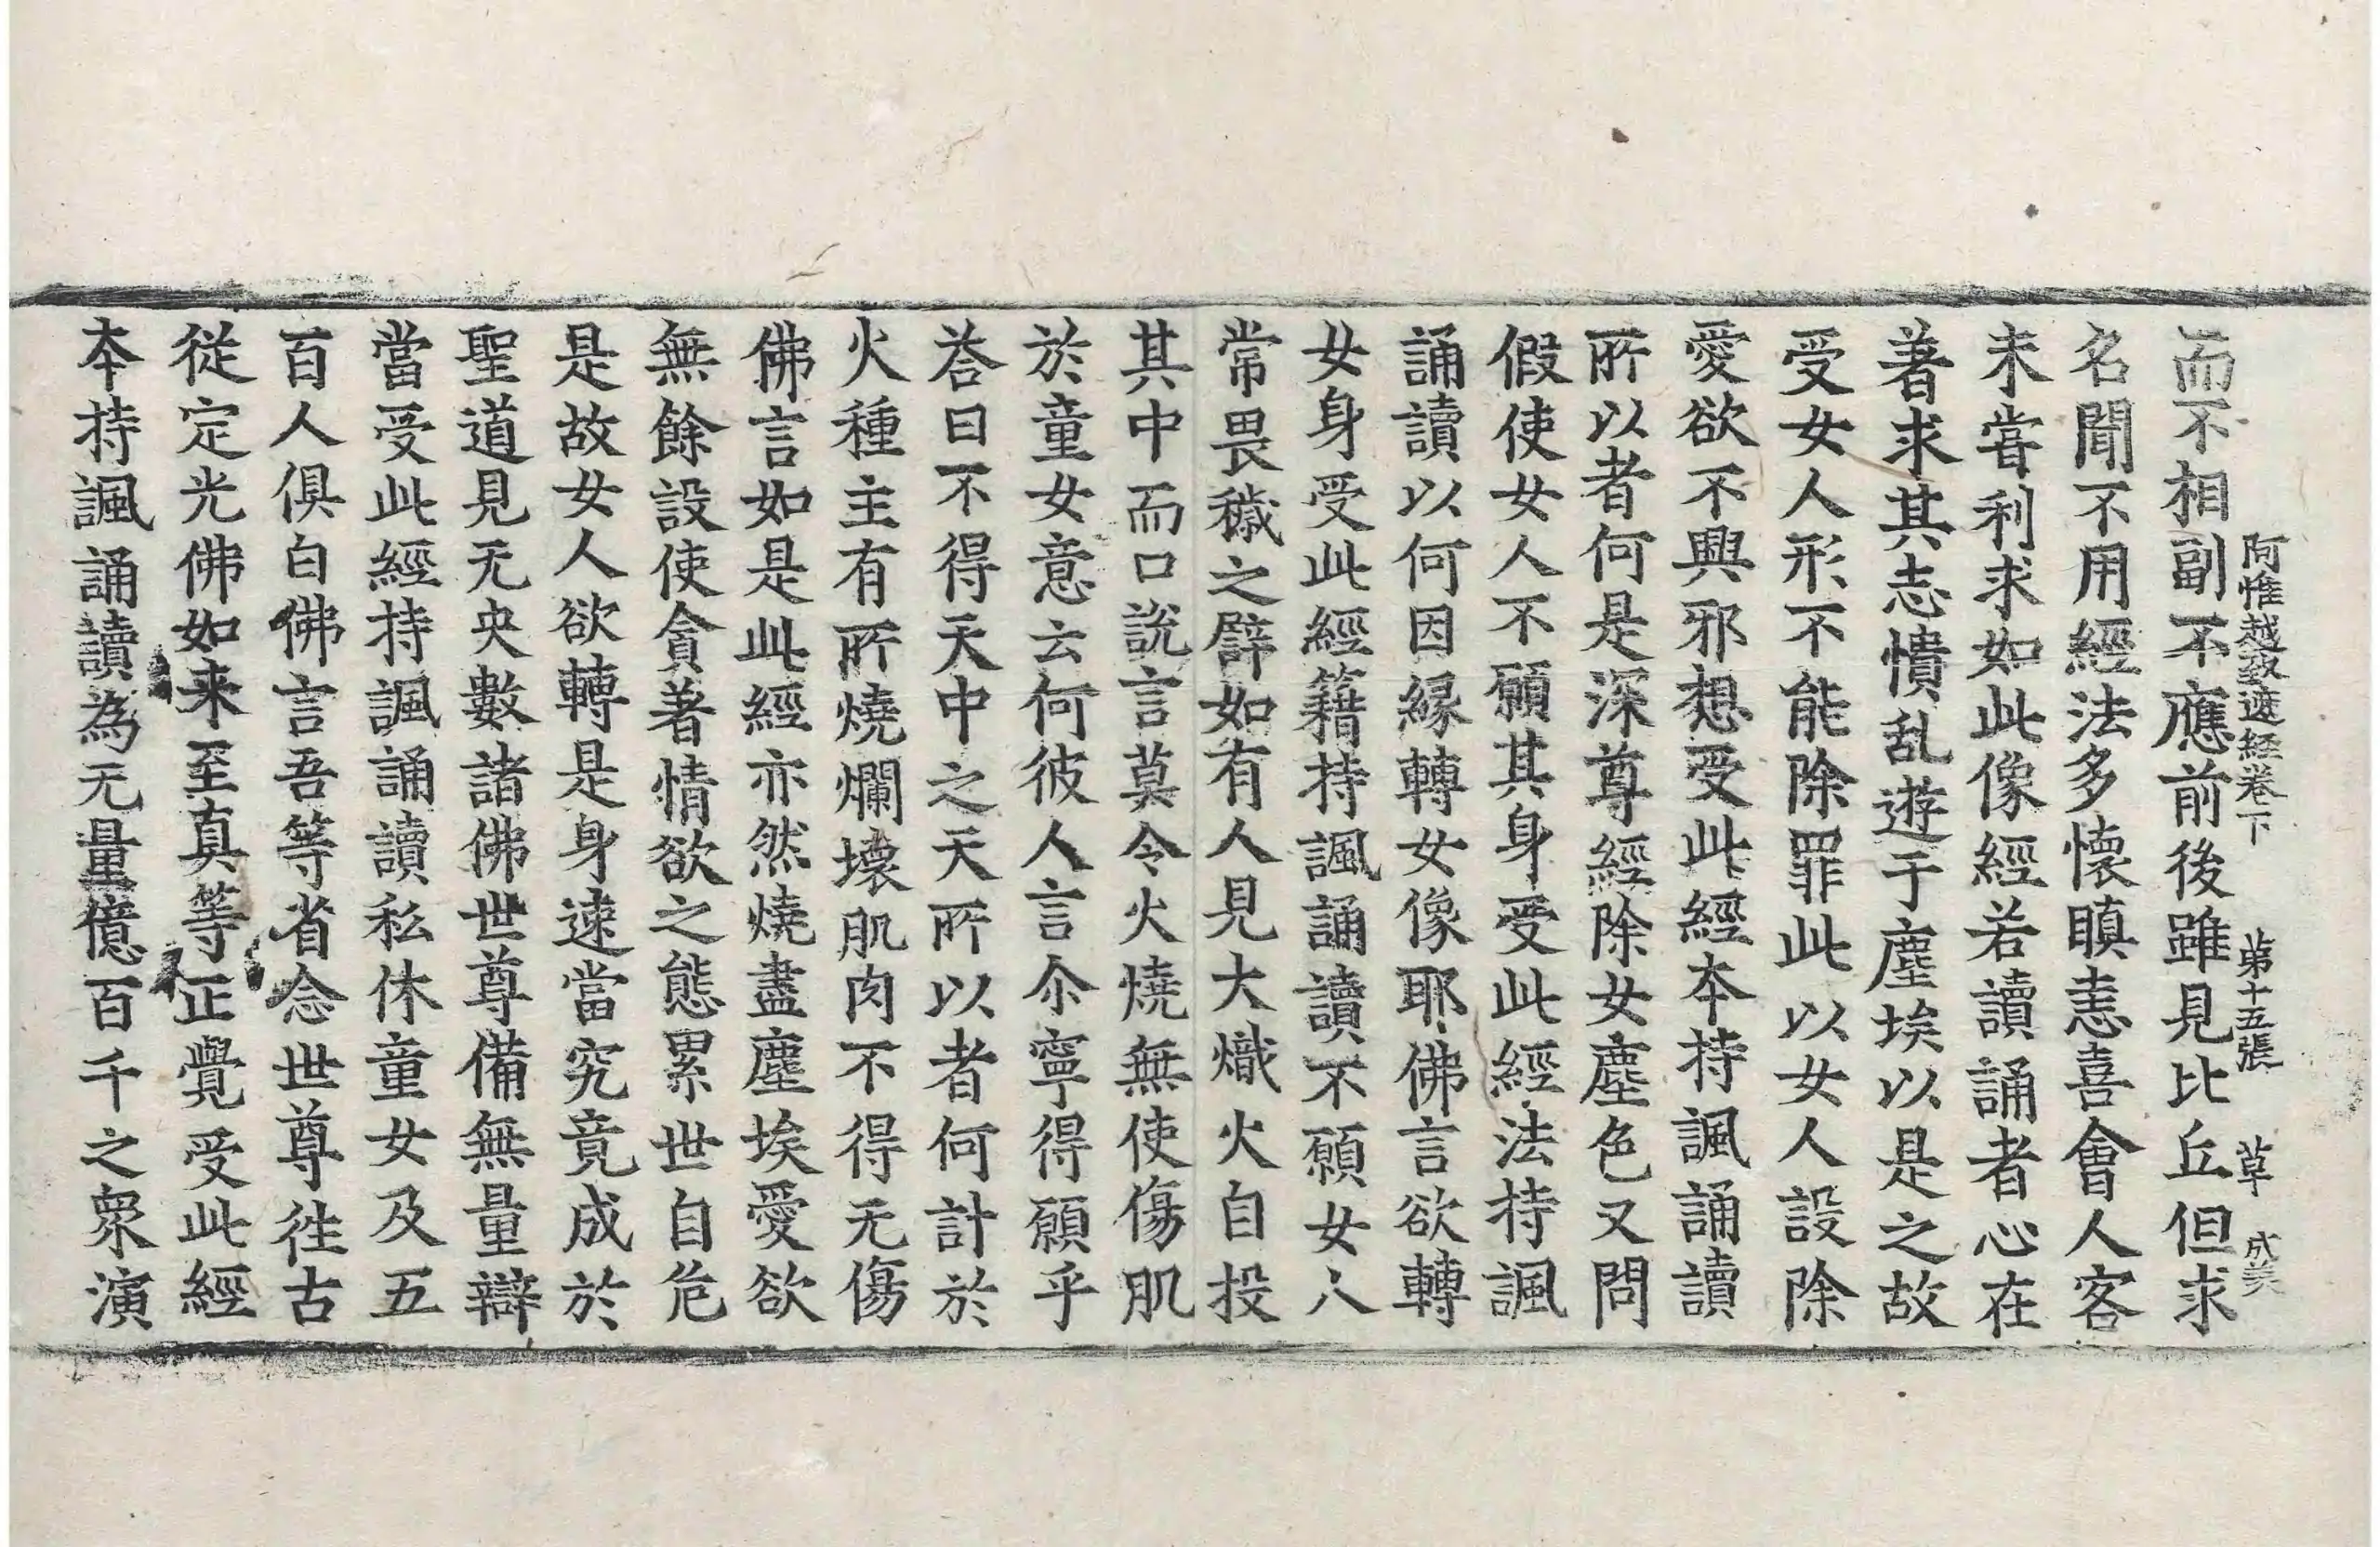 阿惟越致遮経卷下 第十五張 草 成美
而不相副不應前後雖見比丘但求
名聞不用經法多懷瞋恚喜會人客
未甞利求如此像經若讀誦者心在
著求其志憒乱遊于塵埃以是之故
受女人形不能除罪此以女人設除
愛欲不興邪想受此經本持諷誦讀
所以者何是深尊經除女塵色又問
假使女人不願其身受此經法持諷
誦讀以何因縁轉女像耶佛言欲轉
女身受此經籍持諷誦讀不願女人
常畏穢之辟如有人見大熾火自投
其中而口說言莫令火燒無使傷肌
於童女意云何彼人言尒寧得願乎
荅曰不得天中之天所以者何計於
火種主有所燒爛壞肌肉不得无傷
佛言如是此經亦然燒盡塵埃愛欲
無餘設使貪著情欲之態累世自危
是故女人欲轉是身速當究竟成於
聖道見无央數諸佛世尊備無量辯
當受此經持諷誦讀私休童女及五
百人俱白佛言吾等省念世尊徃古
從定光佛如来至真等正覺受此經
本持諷誦讀為无量億百千之衆演